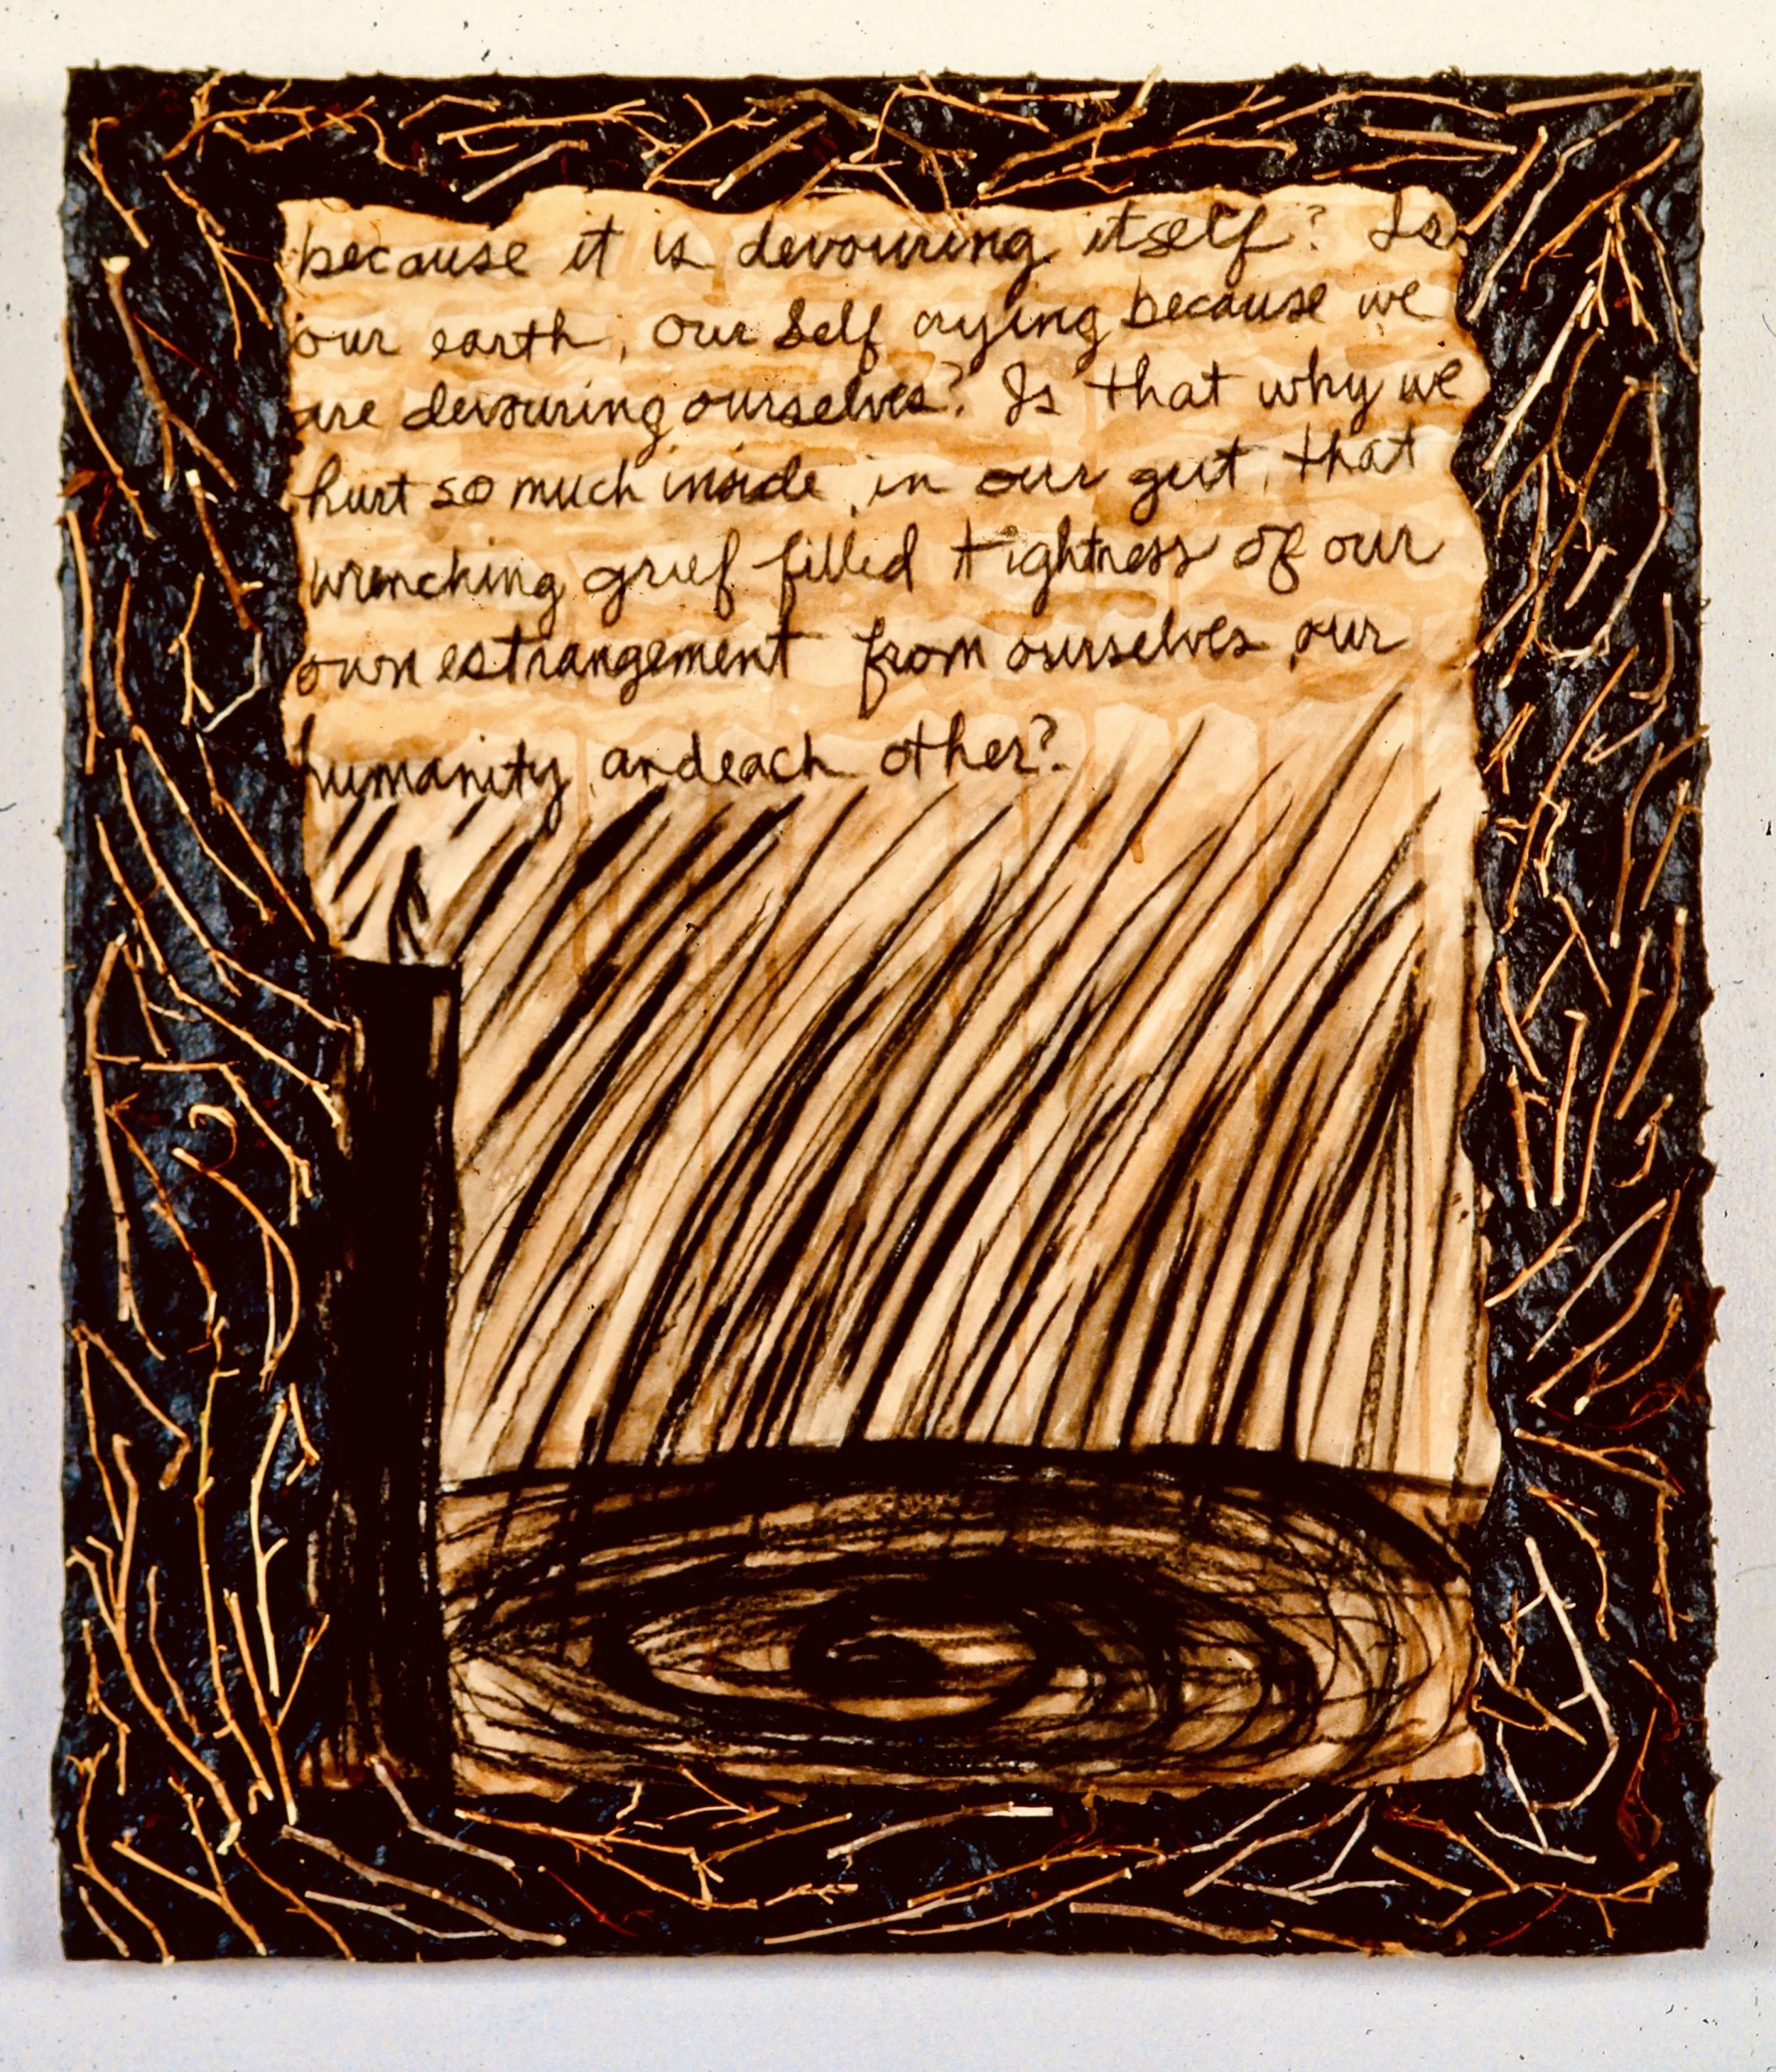 because it is devouring itself? Is
our earth, our self crying because we
are devouring ourselves? Is that why we
hurt so much inside, in our gut, that
wrenching grief filled tightness of our
own estrangement from ourselves, our
humanity, and each other?